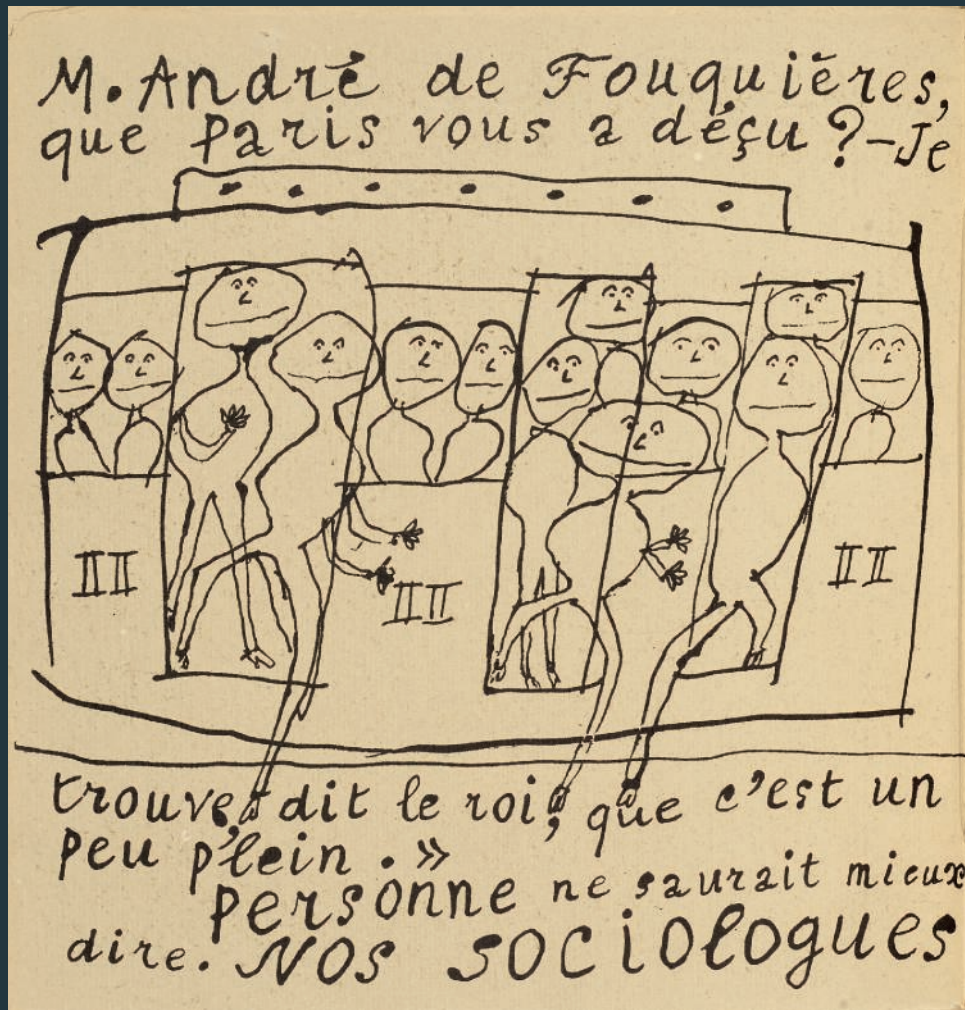 M. André de Fouquières,
que Paris vous a déçu ? – Je
II II II
trouve, dit le roi, que c'est un
peu plein. »
personne ne saurait mieux
dire. NOS SOCIOLOGUES